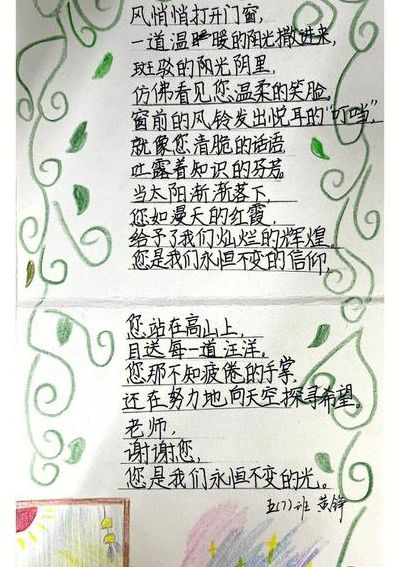 风悄悄打开门窗,
一道温暖的阳光撒进来,
斑驳的阳光阴里,
仿佛看见您温柔的笑脸,
窗前的风铃发出悦耳的"叮当",
就像您清脆的话语
吐露着知识的芬芳。
当太阳渐渐落下,
您如漫天的红霞,
给予了我们灿烂的辉煌。
您是我们永恒不变的信仰,
您站在高山上,
目送每一道汪洋。
您那不知疲倦的手掌
还在努力地向天空探寻希望。
老师,
谢谢您,
您是我们永恒不变的光。
五(7)班 黄铮